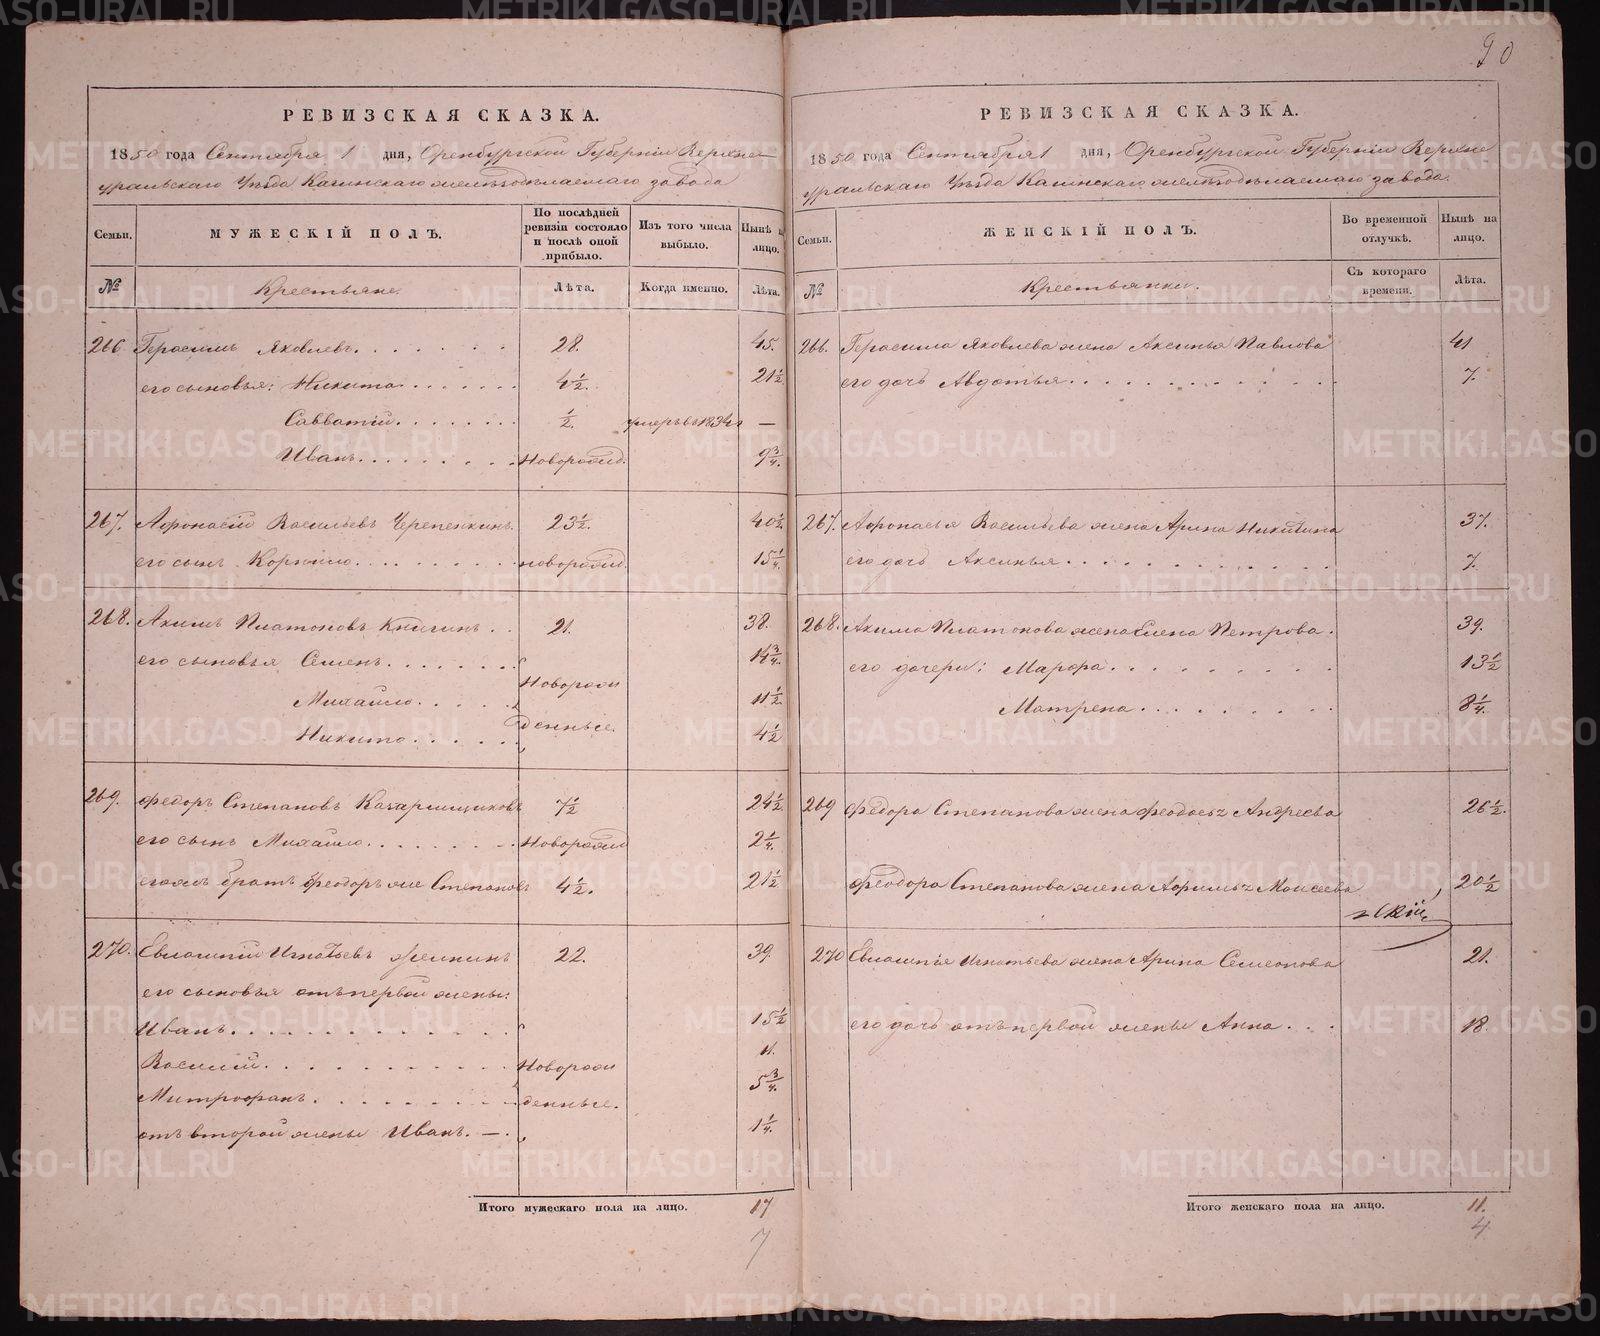 90
РЕВИЗСКАЯ СКАЗКА.
1850 года Сентября 1 дня, Оренбургской Губерніи Верхне-
уральскаго Уѣзда Кагинскаго желѣзодѣлаемаго завода
Семьи.
МУЖЕСКІЙ ПОЛЪ.
По послѣдней ревизіи состояло и послѣ оной прибыло.
Изъ того числа выбыло.
Нынѣ на лицо.
№
Крестьяне.
Лѣта.
Когда именно.
Лѣта.
266 Герасимъ Яковлевъ. 28. 45.
его сыновья: Никита 4½. 21½
Савватій. ½. умеръ въ 1834 г —
Иванъ. Новорожд. 9¾.
267. Афонасій Васильевъ Черепенкинъ. 23½. 40½
его сынъ Корнило. новорожд. 15¼.
268. Акимъ Платоновъ Князинъ. 21. 38.
его сыновья Семенъ. 14¾.
Новорож
Михайло. 11½
денные.
Никита. 4½
269. Федоръ Степановъ 7½ 24½
его сынъ Михайло. Новорожд 2¼.
братъ Феодоръ же Степановъ 4½. 21½
270. Евлампій Игнатьевъ 22. 39.
его сыновья отъ первой жены:
Иванъ. 15½
Василій. Новорож 11.
Митрофанъ. денные. 5¾.
отъ второй жены Иванъ. — 1¼.
Итого мужескаго пола на лицо. 17
7
РЕВИЗСКАЯ СКАЗКА.
1850 года Сентября 1 дня, Оренбургской Губерніи Верхне
уральскаго Уѣзда Кагинскаго желѣзодѣлаемаго завода.
Семьи.
ЖЕНСКІЙ ПОЛЪ.
Во временной отлучкѣ.
Нынѣ на лицо.
№
Крестьянки.
Съ котораго времени.
Лѣта.
266. Герасима Яковлева жена Аксинья Павлова 41
его дочь Авдотья. 7.
267. Афонасья Васильева жена Арина Никитина 37.
его дочь Аксинья. 7.
268. Акима Платонова жена Елена Петрова. 39.
его дочери: Марфа. 13½
Матрена. 8¼.
269 Федора Степанова жена Феодосья Андреева 26½.
Феодора Степанова жена Афимья Моисеева 20½
270 Евлампія Игнатьева жена Арина Семенова 21.
его дочь отъ первой жены Анна. 18.
Итого женскаго пола на лицо. 11.
4
METRIKI.GASO-URAL.RU